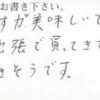 お書き下さい。
すが美味しいて
出張で買ってきて
きそうです。